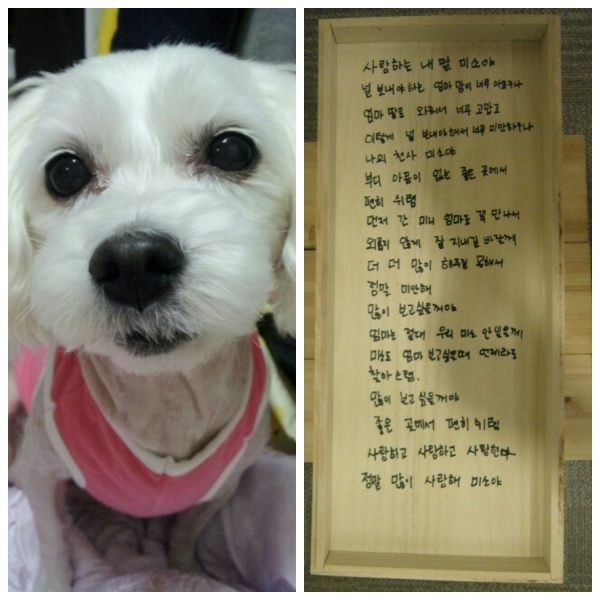 사랑하는 내 딸 미소야
널 보내야하는 엄마 맘이 너무 아프구나
엄마 딸로 와줘서 너무 고맙고
이렇게 널 보내야해서 너무 미안하구나
나의 천사 미소야
부디 아픔이 없는 좋은 곳에서
편히 쉬렴
먼저 간 미니 엄마도 꼭 만나서
외롭지 않게 잘 지내길 바란다
더 더 많이 해주질 못해서
정말 미안해
많이 보고싶을꺼야
엄마는 절대 우리 미소 안잊을께
미소도 엄마 보고싶을때 언제라도
찾아오렴.
많이 보고싶을꺼야
좋은 곳에서 편히 쉬렴
사랑하고 사랑하고 사랑한다
정말 많이 사랑해 미소야